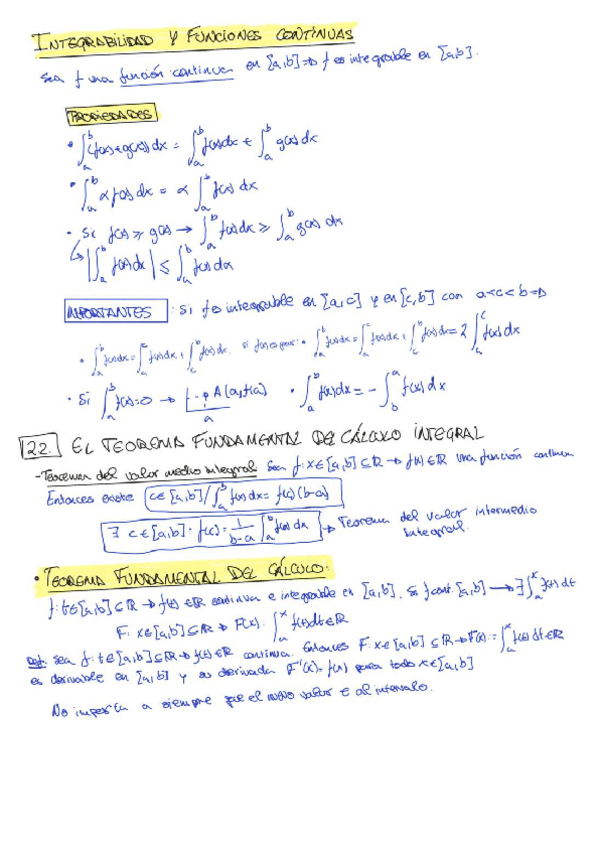 INTEGRABILIDAD Y FUNCIONES CONTINUAS
Sea f una función continua en [a,b] ⇒ f es integrable en [a,b].
PROPIEDADES
• ∫_a^b (f(x)+g(x)) dx = ∫_a^b f(x)dx + ∫_a^b g(x)dx
• ∫_a^b α f(x) dx = α ∫_a^b f(x) dx
• Si f(x) ≥ g(x) → ∫_a^b f(x)dx ≥ ∫_a^b g(x) dx
↳ |∫_a^b f(x)dx| ≤ ∫_a^b f(x)dx
IMPORTANTES : Si f es integrable en [a,c] y en [c,b] con a<c<b ⇒
• ∫_a^b f(x)dx = ∫_a^c f(x)dx + ∫_c^b f(x)dx. Si f es par: • ∫_a^b f(x)dx = ∫_a^c f(x)dx + ∫_c^b f(x)dx = 2 ∫ f(x)dx
• Si ∫_a^b f(x)=0 → A(a,f(a)) • ∫_a^b f(x)dx = - ∫_b^a f(x) dx
a
22. EL TEOREMA FUNDAMENTAL DEL CÁLCULO INTEGRAL
- Teorema del valor medio integral Sea f: x∈[a,b]⊆ℝ → f(x)∈ℝ una función continua
Entonces existe c∈[a,b] / ∫_a^b f(x)dx = f(c)(b-a)
∃ c∈[a,b] : f(c) = 1/(b-a) ∫_a^b f(x)dx → Teorema del valor intermedio
integral.
• TEOREMA FUNDAMENTAL DEL CÁLCULO:
f: t∈[a,b]⊆ℝ → f(t)∈ℝ continua e integrable en [a,b]. Si f cont. [a,b] → ∃ ∫_a^x f(t)dt
F: x∈[a,b]⊆ℝ → F(x): ∫_a^x f(t)dt∈ℝ
Sea f: t∈[a,b]⊆ℝ → f(t)∈ℝ continua. Entonces F: x∈[a,b]⊆ℝ → F(x) = ∫_a^x f(t)dt∈ℝ
es derivable en [a,b] y su derivada F'(x) = f(x) para todo x∈[a,b]
No importa a siempre que el nuevo valor ∈ al intervalo.